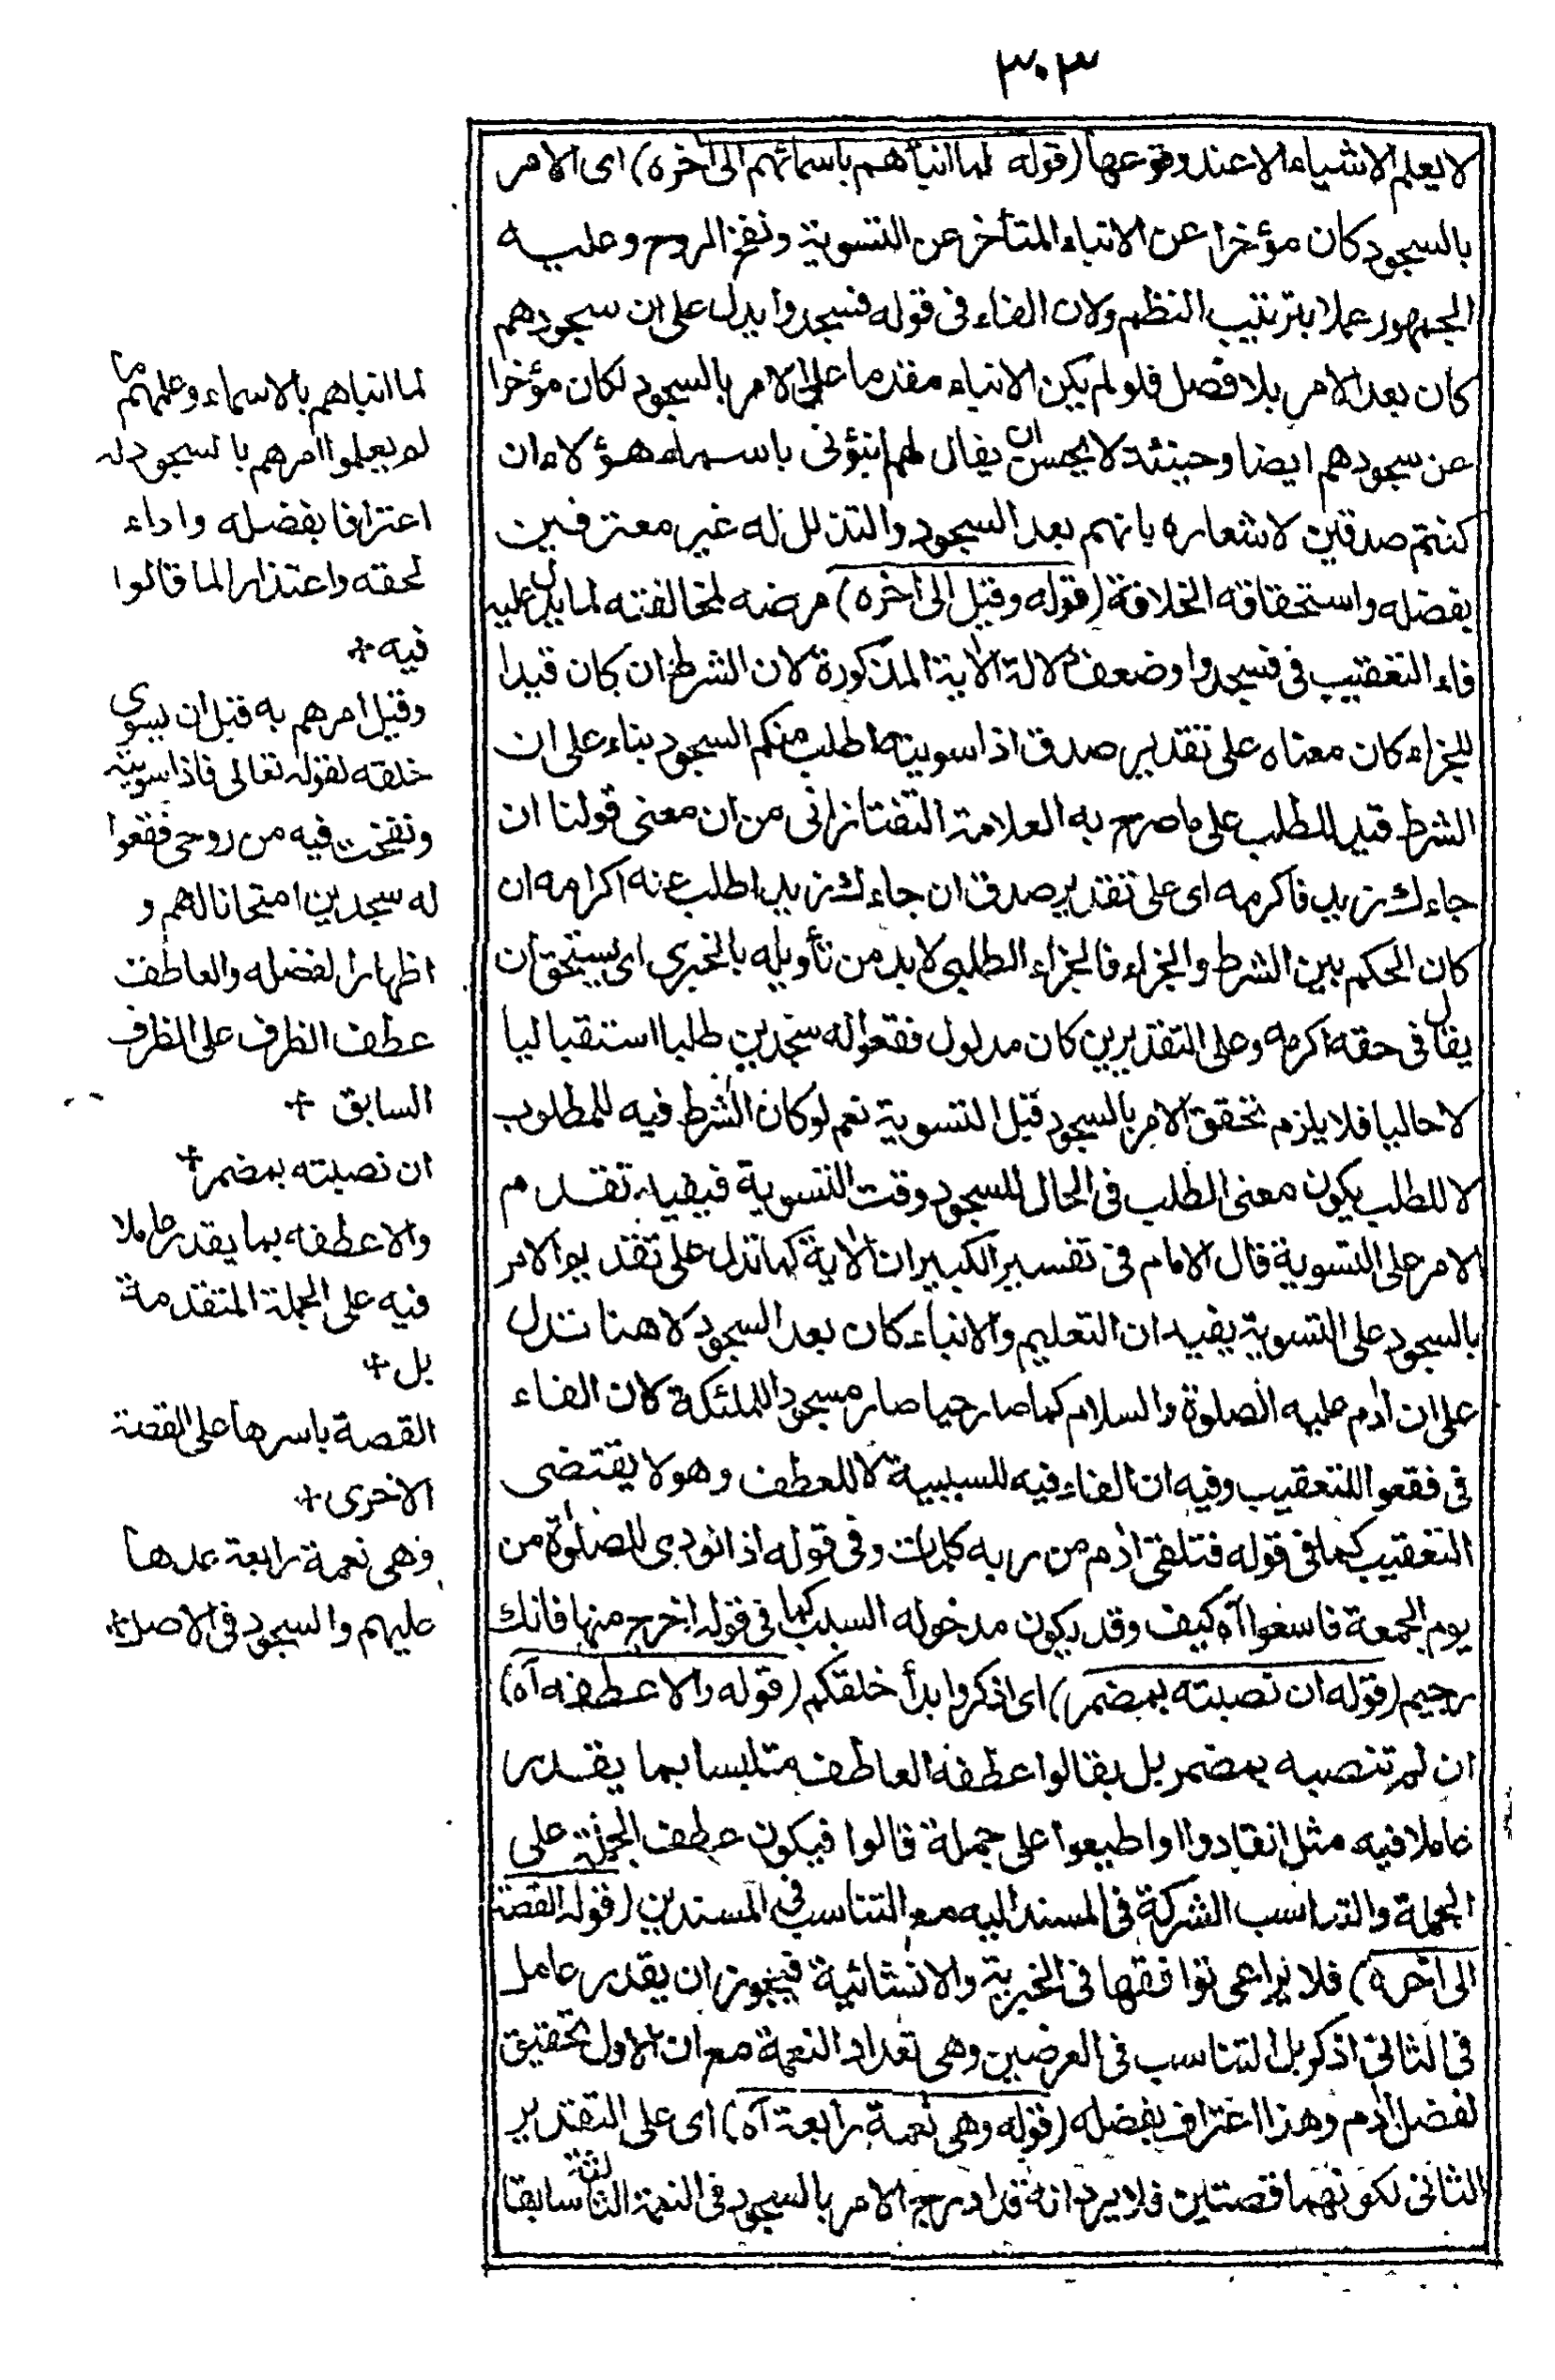 ٣٠٣
لا يعلم الاشياء الا عند وقوعها (قوله لما انبأهم باسمائهم الى اخره) اى الامر
بالسجود كان مؤخرا عن الانباء المتأخر عن التسوية ونفخ الروح وعليه
الجمهور عملا بترتيب النظم ولان الفاء فى قوله فسجدوا يدل على ان سجودهم
كان بعد الامر بلا فصل فلو لم يكن الانباء مقدما على الامر بالسجود لكان مؤخرا
عن سجودهم ايضا وحينئذ لا يحسن ان يقال لهم انبؤنى باسماء هؤلاء ان
كنتم صدقين لاشعاره بانهم بعد السجود والتذلل له غير معترفين
بفضله واستحقاقه الخلافة (قوله وقيل الى اخره) مرضه لمخالفته لما يدل عليه
فاء التعقيب فى فسجدوا وضعف دلالة الاية المذكورة لان الشرط ان كان قيدا
للجزاء كان معناه على تقدير صدق اذا سويته اطلب منكم السجود بناء على ان
الشرط قيد للطلب على ما صرح به العلامة التفتازانى من ان معنى قولنا ان
جاءك زيد فاكرمه اى على تقدير صدق ان جاءك زيد اطلب عنه اكرامه ان
كان الحكم بين الشرط والجزاء فالجزاء الطلبى لا بد من تأويله بالخبرى اى يستحق ان
يقال فى حقه اكرمه وعلى التقديرين كان مدلول فقعوا له سجدين طلبا استقباليا
لا حاليا فلا يلزم تحقق الامر بالسجود قبل التسوية نعم لو كان الشرط فيه للمطلوب
لا للطلب يكون معنى الطلب فى الحال للسجود وقت التسوية فيفيد تقدم
الامر على التسوية قال الامام فى تفسير الكبير ان الاية كما تدل على تقديم الامر
بالسجود على التسوية يفيد ان التعليم والانباء كان بعد السجود لاهنا تدل
على ان ادم عليه الصلوة والسلام كما صار حيا صار مسجود الملئكة لان الفاء
فى فقعوا للتعقيب وفيه ان الفاء فيه للسببية لا للعطف وهو لا يقتضى
التعقيب كما فى قوله فتلقى ادم من ربه كلمات وفى قوله اذا نودى للصلوة من
يوم الجمعة فاسعوا اه كيف وقد يكون مدخوله السبب كما فى قوله اخرج منها فانك
رجيم (قوله ان نصبته بمضمر) اى اذكروا بدأ خلقكم (قوله والا عطفه اه)
ان لم تنصبه بمضمر بل بقالوا عطفه العاطف متلبسا بما يقدر
عاملا فيه مثل انقادوا او اطيعوا على جملة قالوا فيكون عطف الجملة على
الجملة والتناسب الشركة فى المسند اليه مع التناسب فى المسندين (قوله القصة
الى اخره) فلا يراعى توافقها فى الخبرية والانشائية فيجوز ان يقدر عامل
فى الثانى اذكر بل التناسب فى الغرضين وهى تعداد النعمة مع ان الاول تحقيق
لفضل ادم وهذا اعتراف بفضله (قوله وهى نعمة رابعة اه) اى على التقدير
الثانى لكونهما قصتين فلا يرد انه قد ادرج الامر بالسجود فى النعمة الثالثة سابقا
لما انباهم بالاسماء وعلمهم ما
لم يعلموا امرهم بالسجود له
اعترافا بفضله واداء
لحقه واعتذارا لما قالوا
فيه +
وقيل امرهم به قبل ان يسوى
خلقه لقوله تعالى فاذا سويته
ونفخت فيه من روحى فقعوا
له سجدين امتحانا لهم و
اظهارا لفضله والعاطف
عطف الظرف على الظرف
السابق +
ان نصبته بمضمر +
والا عطفه بما يقدر عاملا
فيه على الجملة المتقدمة
بل +
القصة باسرها على القصة
الاخرى +
وهى نعمة رابعة عدها
عليهم والسجود فى الاصل +